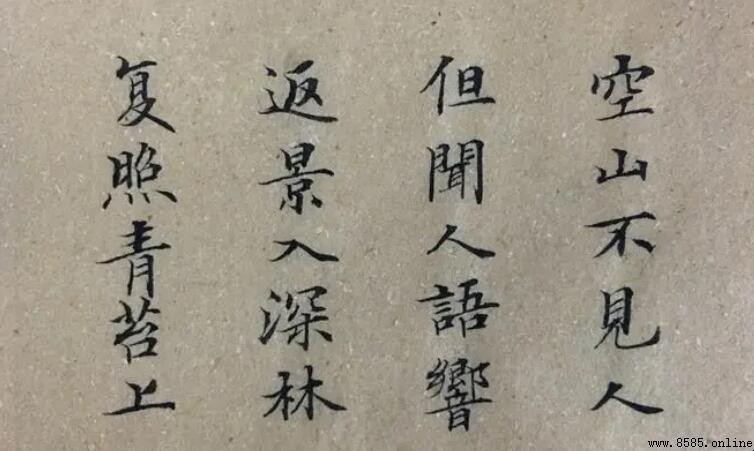 空山不見人
但聞人語響
返景入深林
复照青苔上
www.8585.online